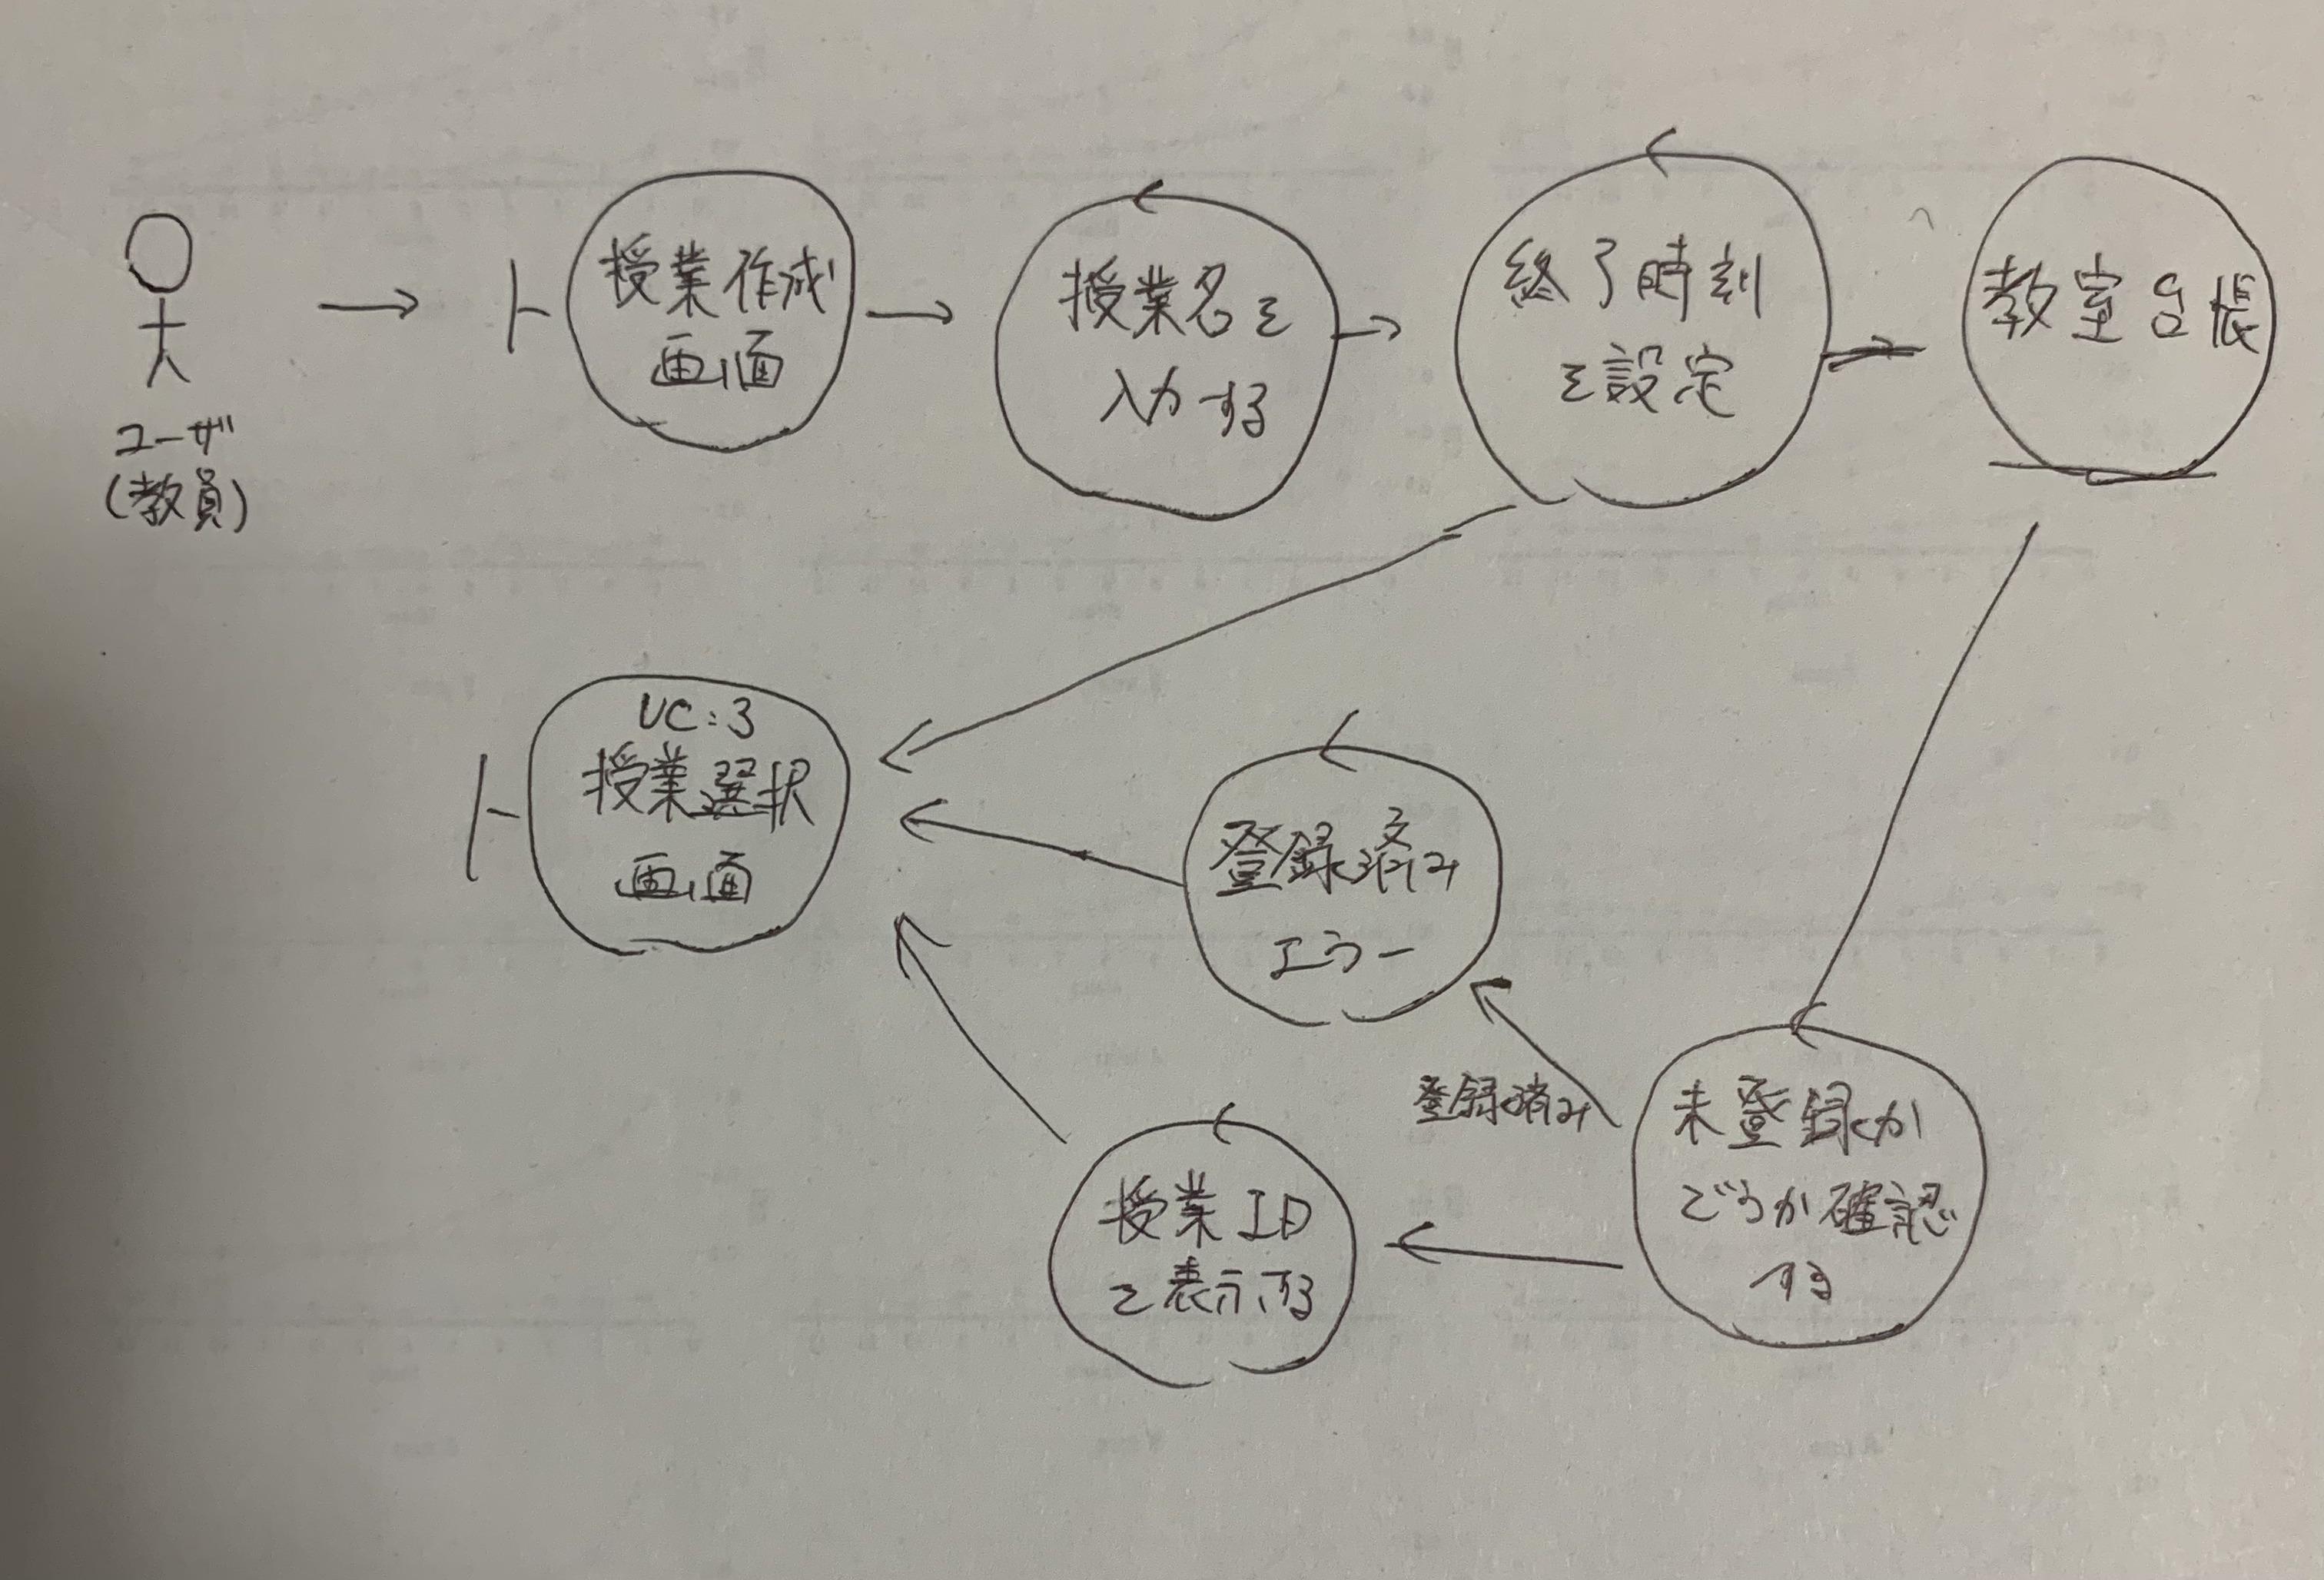 授業作成
画面
授業名を
入力する
終了時刻
を設定
教室台帳
ユーザ
(教員)
UC:3
授業選択
画面
登録済み
エラー
登録済み
未登録か
どうか確認
する
授業ID
を表示する